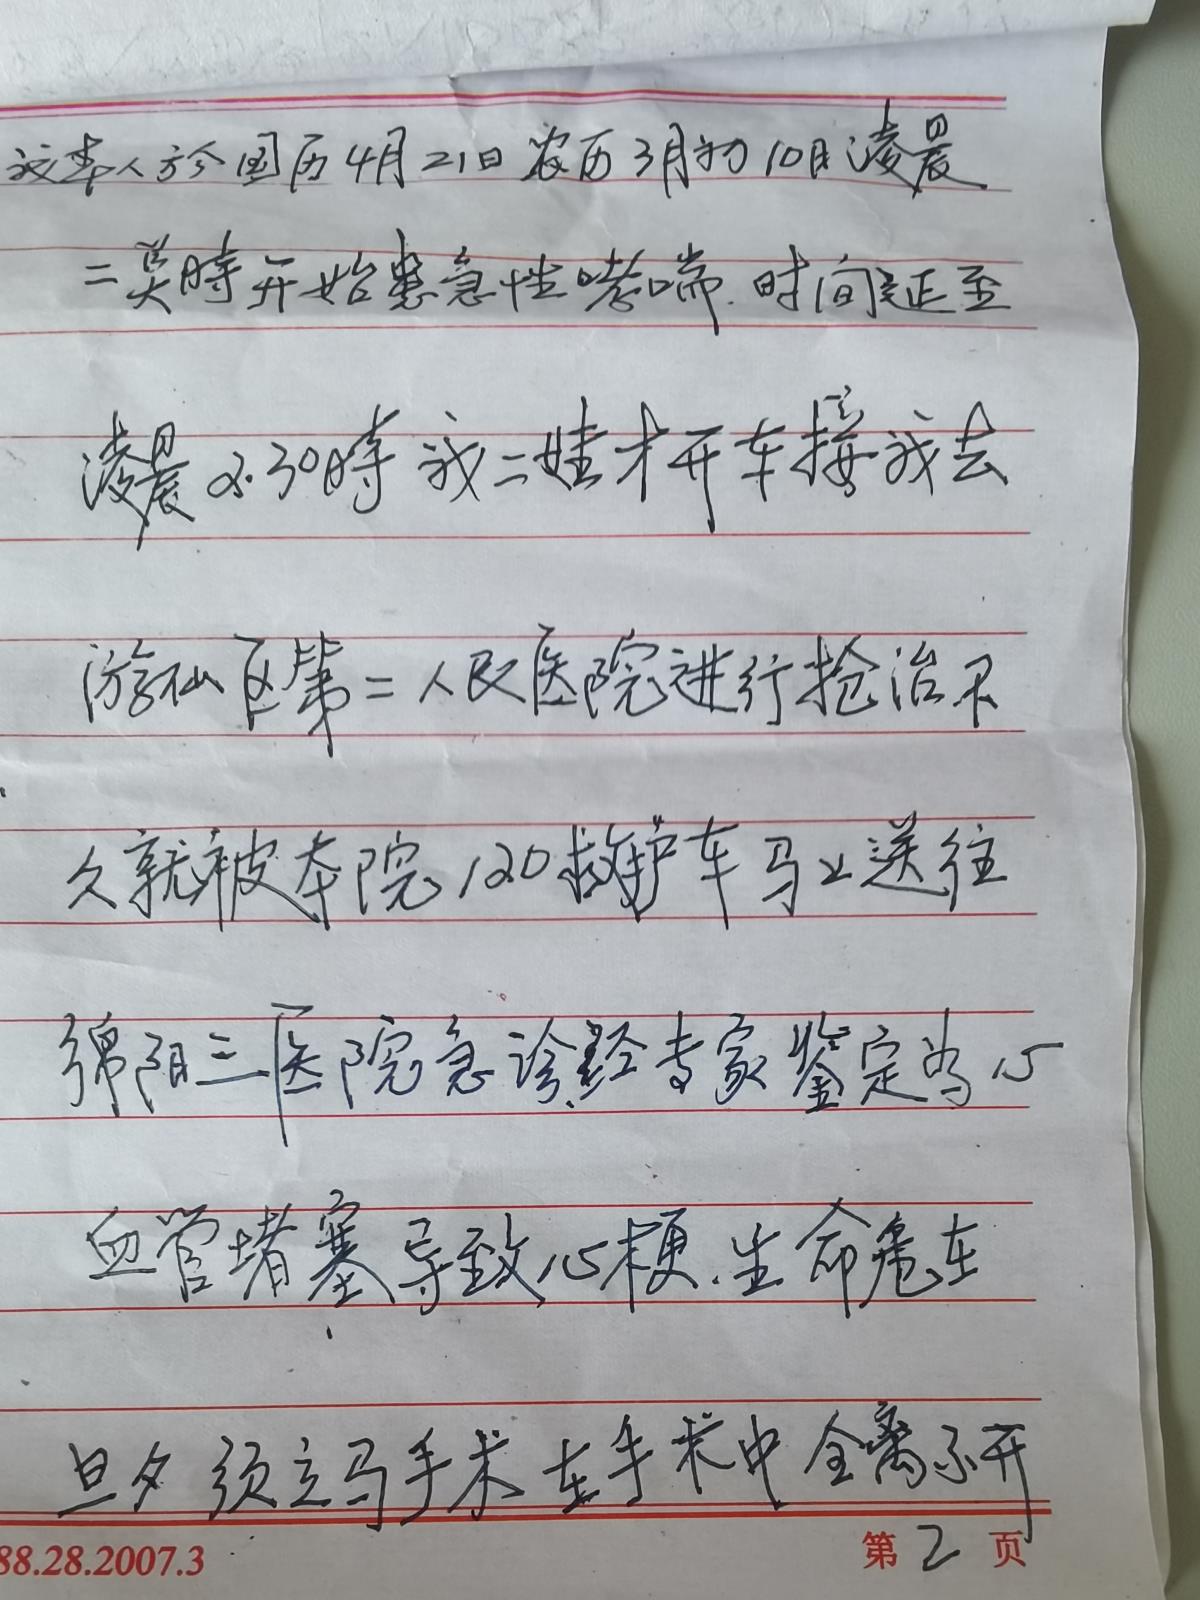 我本人於今国历4月21日农历3月初10日凌晨
二奌時开始患急性哮喘.时间延至
凌晨2.30時我二娃才开车接我去
游仙区第二人民医院进行抢治不
久就被本院120救护车马上送往
绵阳三医院急诊.经专家鉴定为心
血管堵塞导致心梗.生命危在
旦夕须立马手术在手术中全离不开
88.28.2007.3
第2页